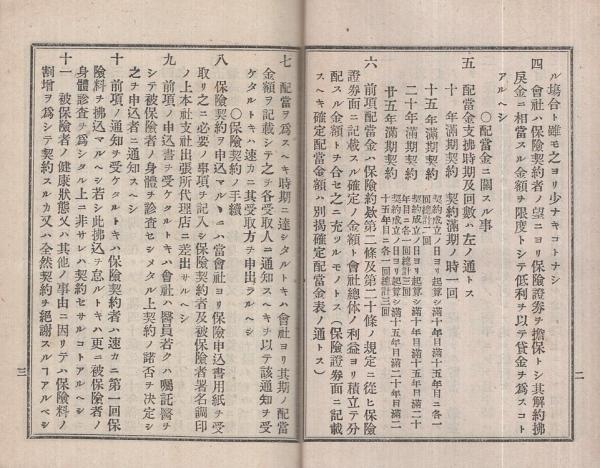 ル場合ト雖モ之ヨリ少ナキコトナシ
四 會社ハ保險契約者ノ望ニヨリ保險證券ヲ擔保トシ其解約拂
戾金ニ相當スル金額ヲ限度トシテ低利ヲ以テ貸金ヲ爲スコト
アルヘシ
〇配當金ニ關スル事
五 配當金支拂時期及回數ハ左ノ通トス
十年滿期契約 契約滿期ノ時一回
十五年滿期契約 契約成立ノ日ヨリ起算シ滿十年目滿十五年目ニ各一
回總計二回
二十年滿期契約 契約成立ノ日ヨリ起算シ滿十年目滿十五年目滿二十
年目ニ各一回總計三回
廿五年滿期契約 契約成立ノ日ヨリ起算シ滿十五年目滿二十年目滿二
十五年目ニ各一回總計三回
六 前項配當金ハ保險約款第二條及第二十條ノ規定ニ從ヒ保險
證券面ニ記載スル確定ノ金額ト會社總体ノ利益ヨリ積立テ分
配スル金額トヲ合セ之ニ充ツルモノトス(保險證券面ニ記載
スヘキ確定配當金額ハ別揭確定配當金表ノ通トス)
二
七 配當ヲ爲スヘキ時期ニ達シタルトキハ會社ヨリ其期ノ配當
金額ヲ記載シテ之ヲ各受取人ニ通知スヘキヲ以テ該通知ヲ受
ケタルトキハ速カニ其受取方ヲ申出ラルヘシ
〇保險契約ノ手續
八 保險契約ヲ申込マルヽニハ當會社ヨリ保險申込書用紙ヲ受
取リ之ニ必要ノ事項ヲ記入シ保險契約者及被保險者署名調印
ノ上本社支社出張所代理店ニ差出サルヘシ
九 前項ノ申込書ヲ受ケタルトキハ會社ハ醫員若クハ囑託醫ヲ
シテ被保險者ノ身體ヲ診査セシメタル上契約ノ諾否ヲ決定シ
之ヲ申込者ニ通知スヘシ
十 前項ノ通知ヲ受ケタルトキハ保險契約者ハ速カニ第一回保
險料ヲ拂込マルヘシ若シ此拂込ヲ怠ルトキハ更ニ被保險者ノ
身體診査ヲ爲シタル上ニ非サレハ契約セサルコトアルヘシ
十一 被保險者ノ健康狀態又ハ其他ノ事由ニ因リテハ保險料ノ
割增ヲ爲シテ契約スルカ又ハ全然契約ヲ絕謝スルヿアルヘシ
三